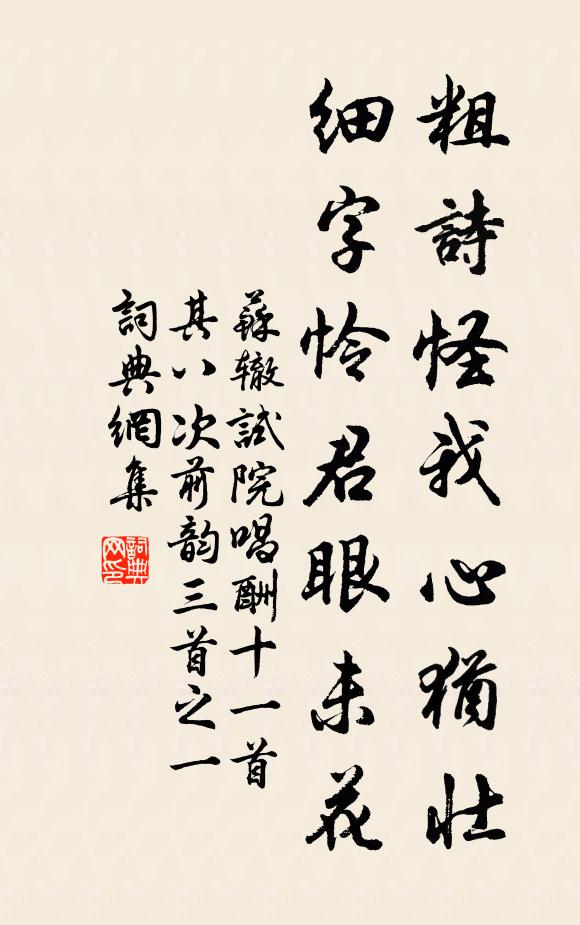 粗詩怪我心猶壯
細字憐君眼未花
蘇辙試院唱酬十一首
其八次前韵三首之一
詞典網集
詞典网印